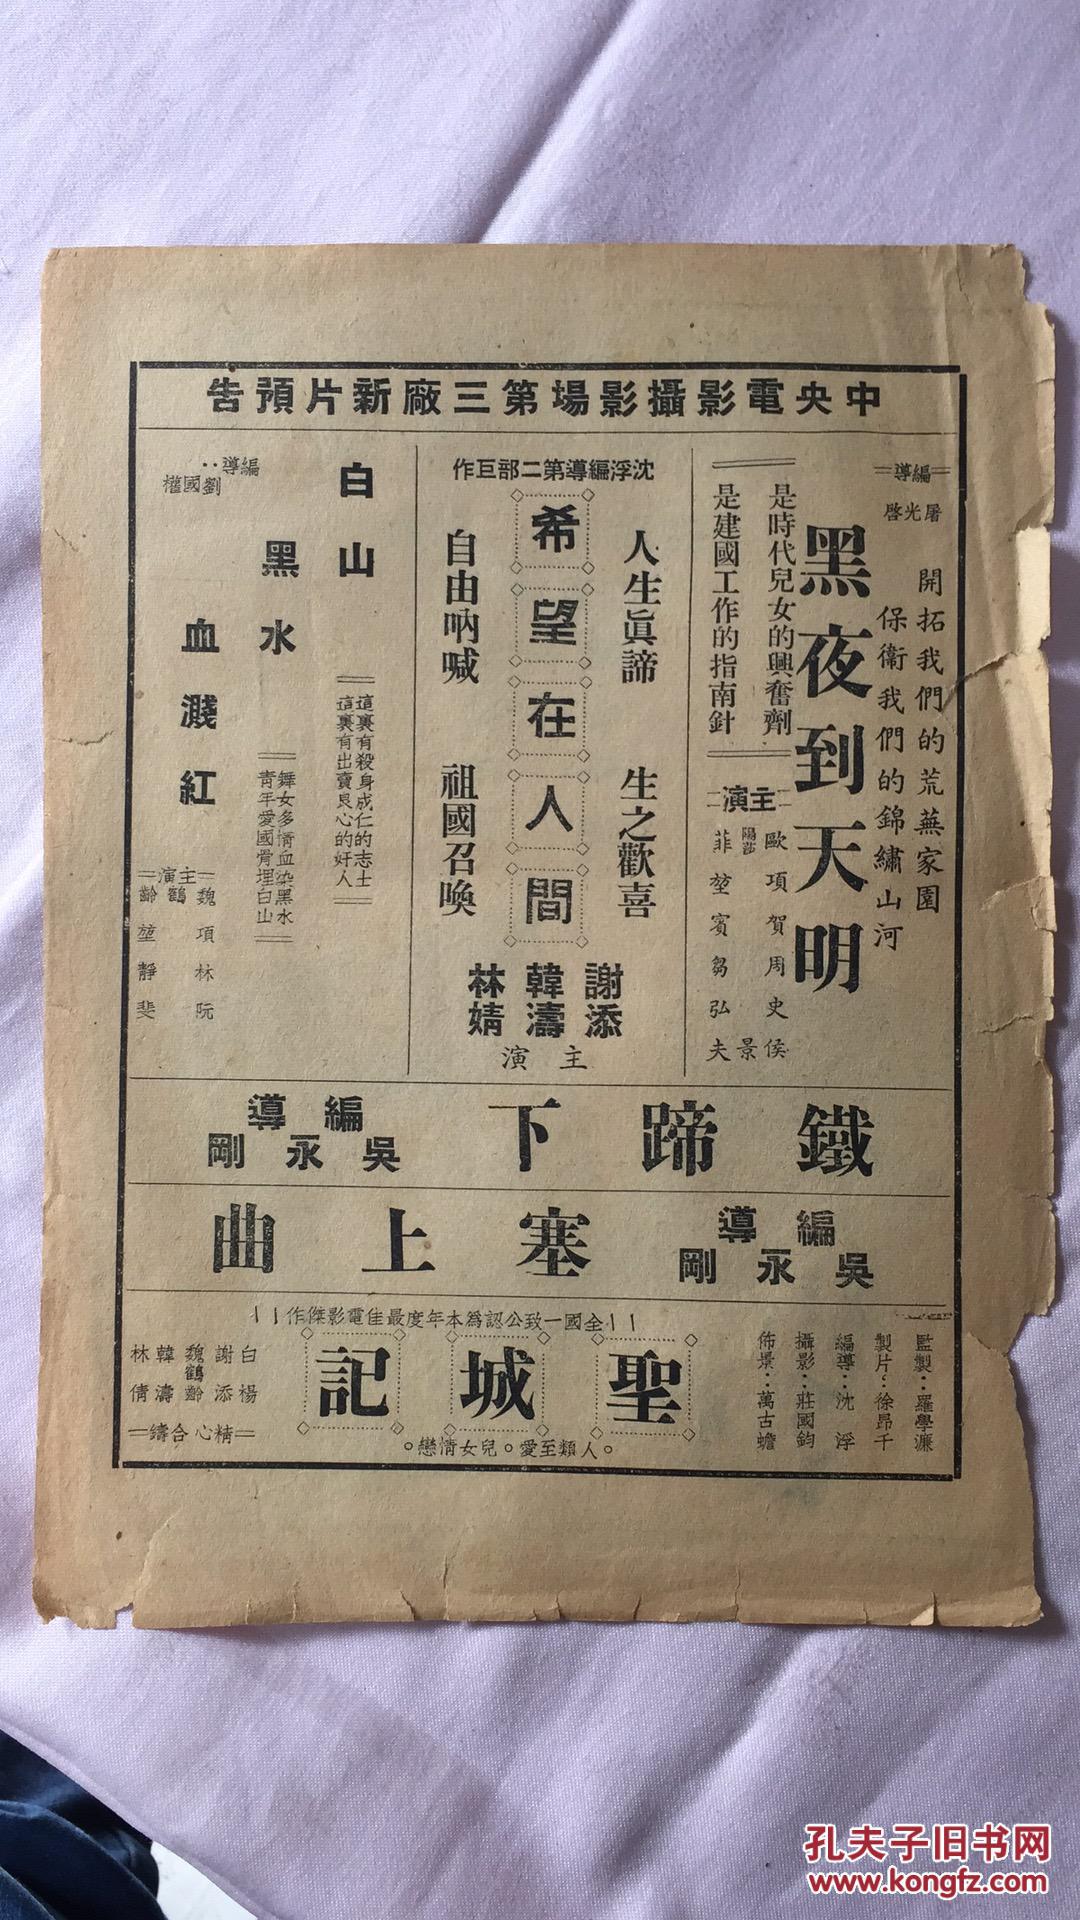 中央電影攝影場第三廠新片預告
編導
屠光啓
開拓我們的荒蕪家園
保衞我們的錦繡山河
黑夜到天明
是時代兒女的興奮劑
是建國工作的指南針
主演
歐陽莎菲
項堃
賀賓
周芻
史弘
侯景夫
沈浮編導第二部巨作
人生眞諦 生之歡喜
希望在人間
自由吶喊 祖國召喚
謝添
韓濤
林婧
主演
白山
這裏有殺身成仁的志士
這裏有出賣良心的奸人
黑水
舞女多情血染黑水
青年愛國骨埋白山
血濺紅
編導：劉國權
主演
魏鶴齡
項堃
林靜
阮斐
鐵蹄下
編導
吳永剛
編導
吳永剛
塞上曲
全國一致公認爲本年度最佳電影傑作
監製：羅學濂
製片：徐昂千
編導：沈浮
攝影：莊國鈞
佈景：萬古蟾
聖城記
白楊
謝添
魏鶴齡
韓濤
林倩
精心合鑄
。人類至愛。兒女情戀。
孔夫子旧书网
www.kongfz.com